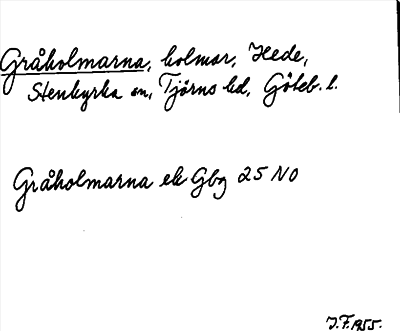 Gråholmarna, holmar, Hede,
Stenkyrka sn, Tjörns hd, Göteb. l.
Gråholmarna ek Gbg 25 NO
J.F. 1955.